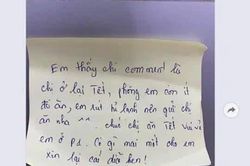 Em thấy chị comment là
chị ở lại TẾT, phòng em còn ít
đồ ăn, em rút tủ lạnh nên gửi chị
ăn nha ^^ chúc chị ăn TẾT vui vẻ
em ở P.1. Có gì mai mốt cho em
xin lại cái đĩa hen!